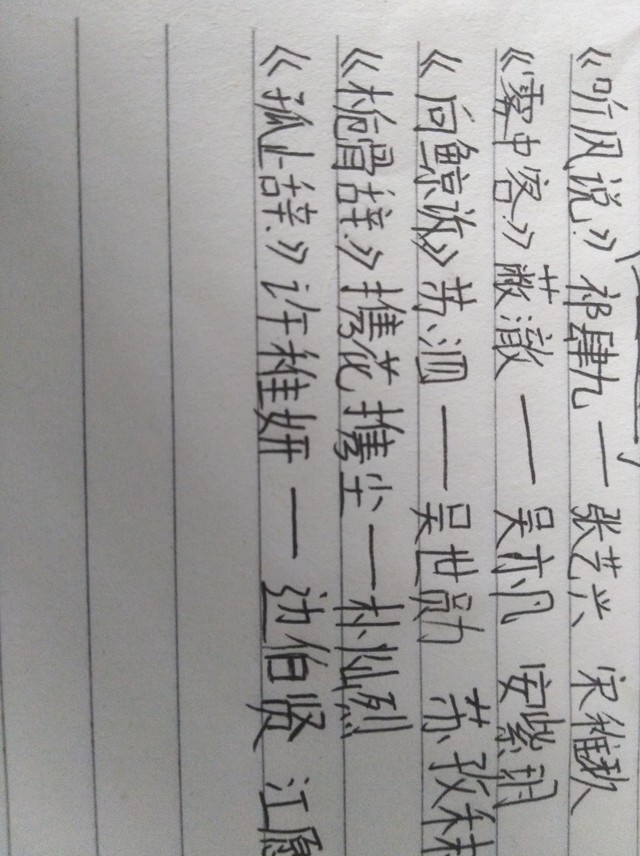 《听风说》祁肆九 — 张艺兴 宋稚玖
《雾中客》蔽澈 — 吴亦凡 安紫玥
《向鲸》 — 吴世勋 苏孜
《桅骨辞》携花携尘 — 朴灿烈
《孤山辞》许稚妍 — 边伯贤 江愿